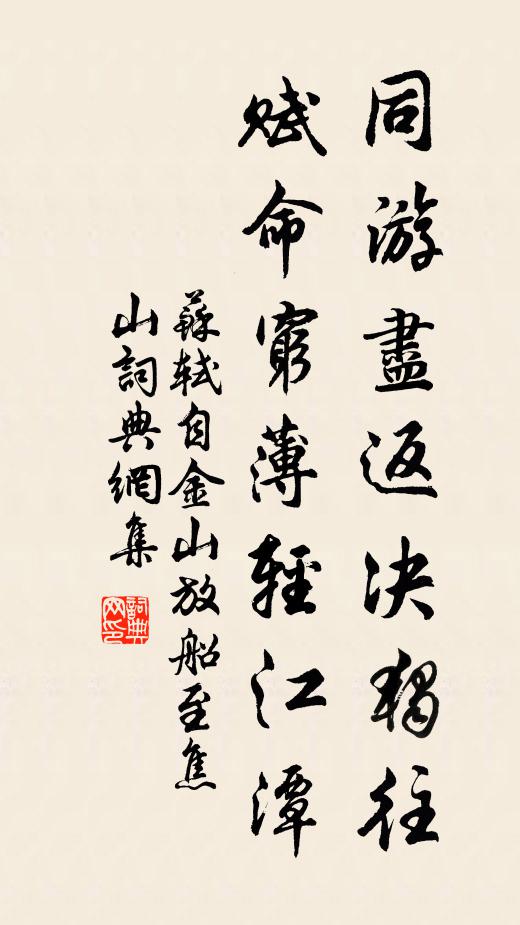 同游盡返決獨往
賦命窮薄輕江潭
蘇軾自金山放船至焦
山詞典網集
詞典
网印